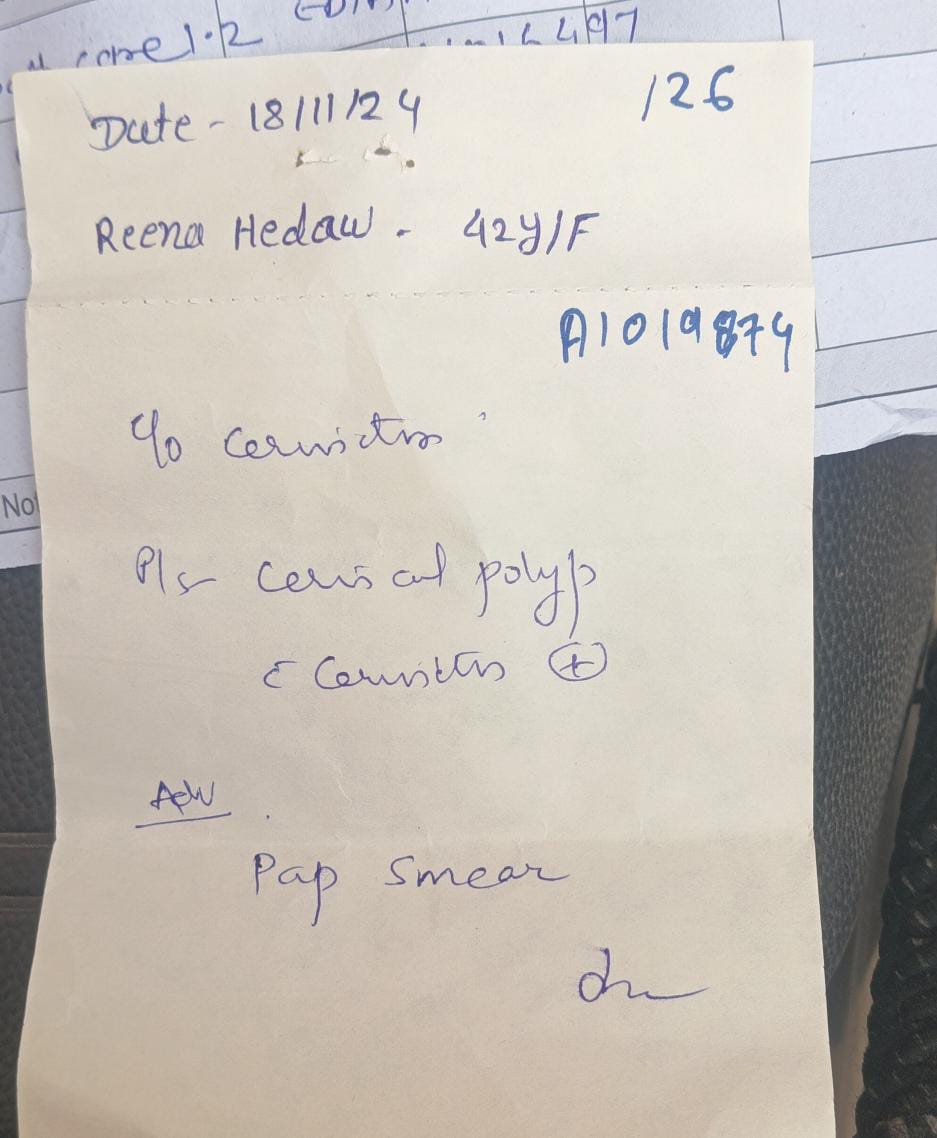 core 1.2
497
Date - 18/11/24 /26
Reena Hedaw - 42Y/F
A1019874
c/o Cervicitis
P/s - Cervical polyp
c̄ Cervicitis ⊕
Adv
Pap Smear
No